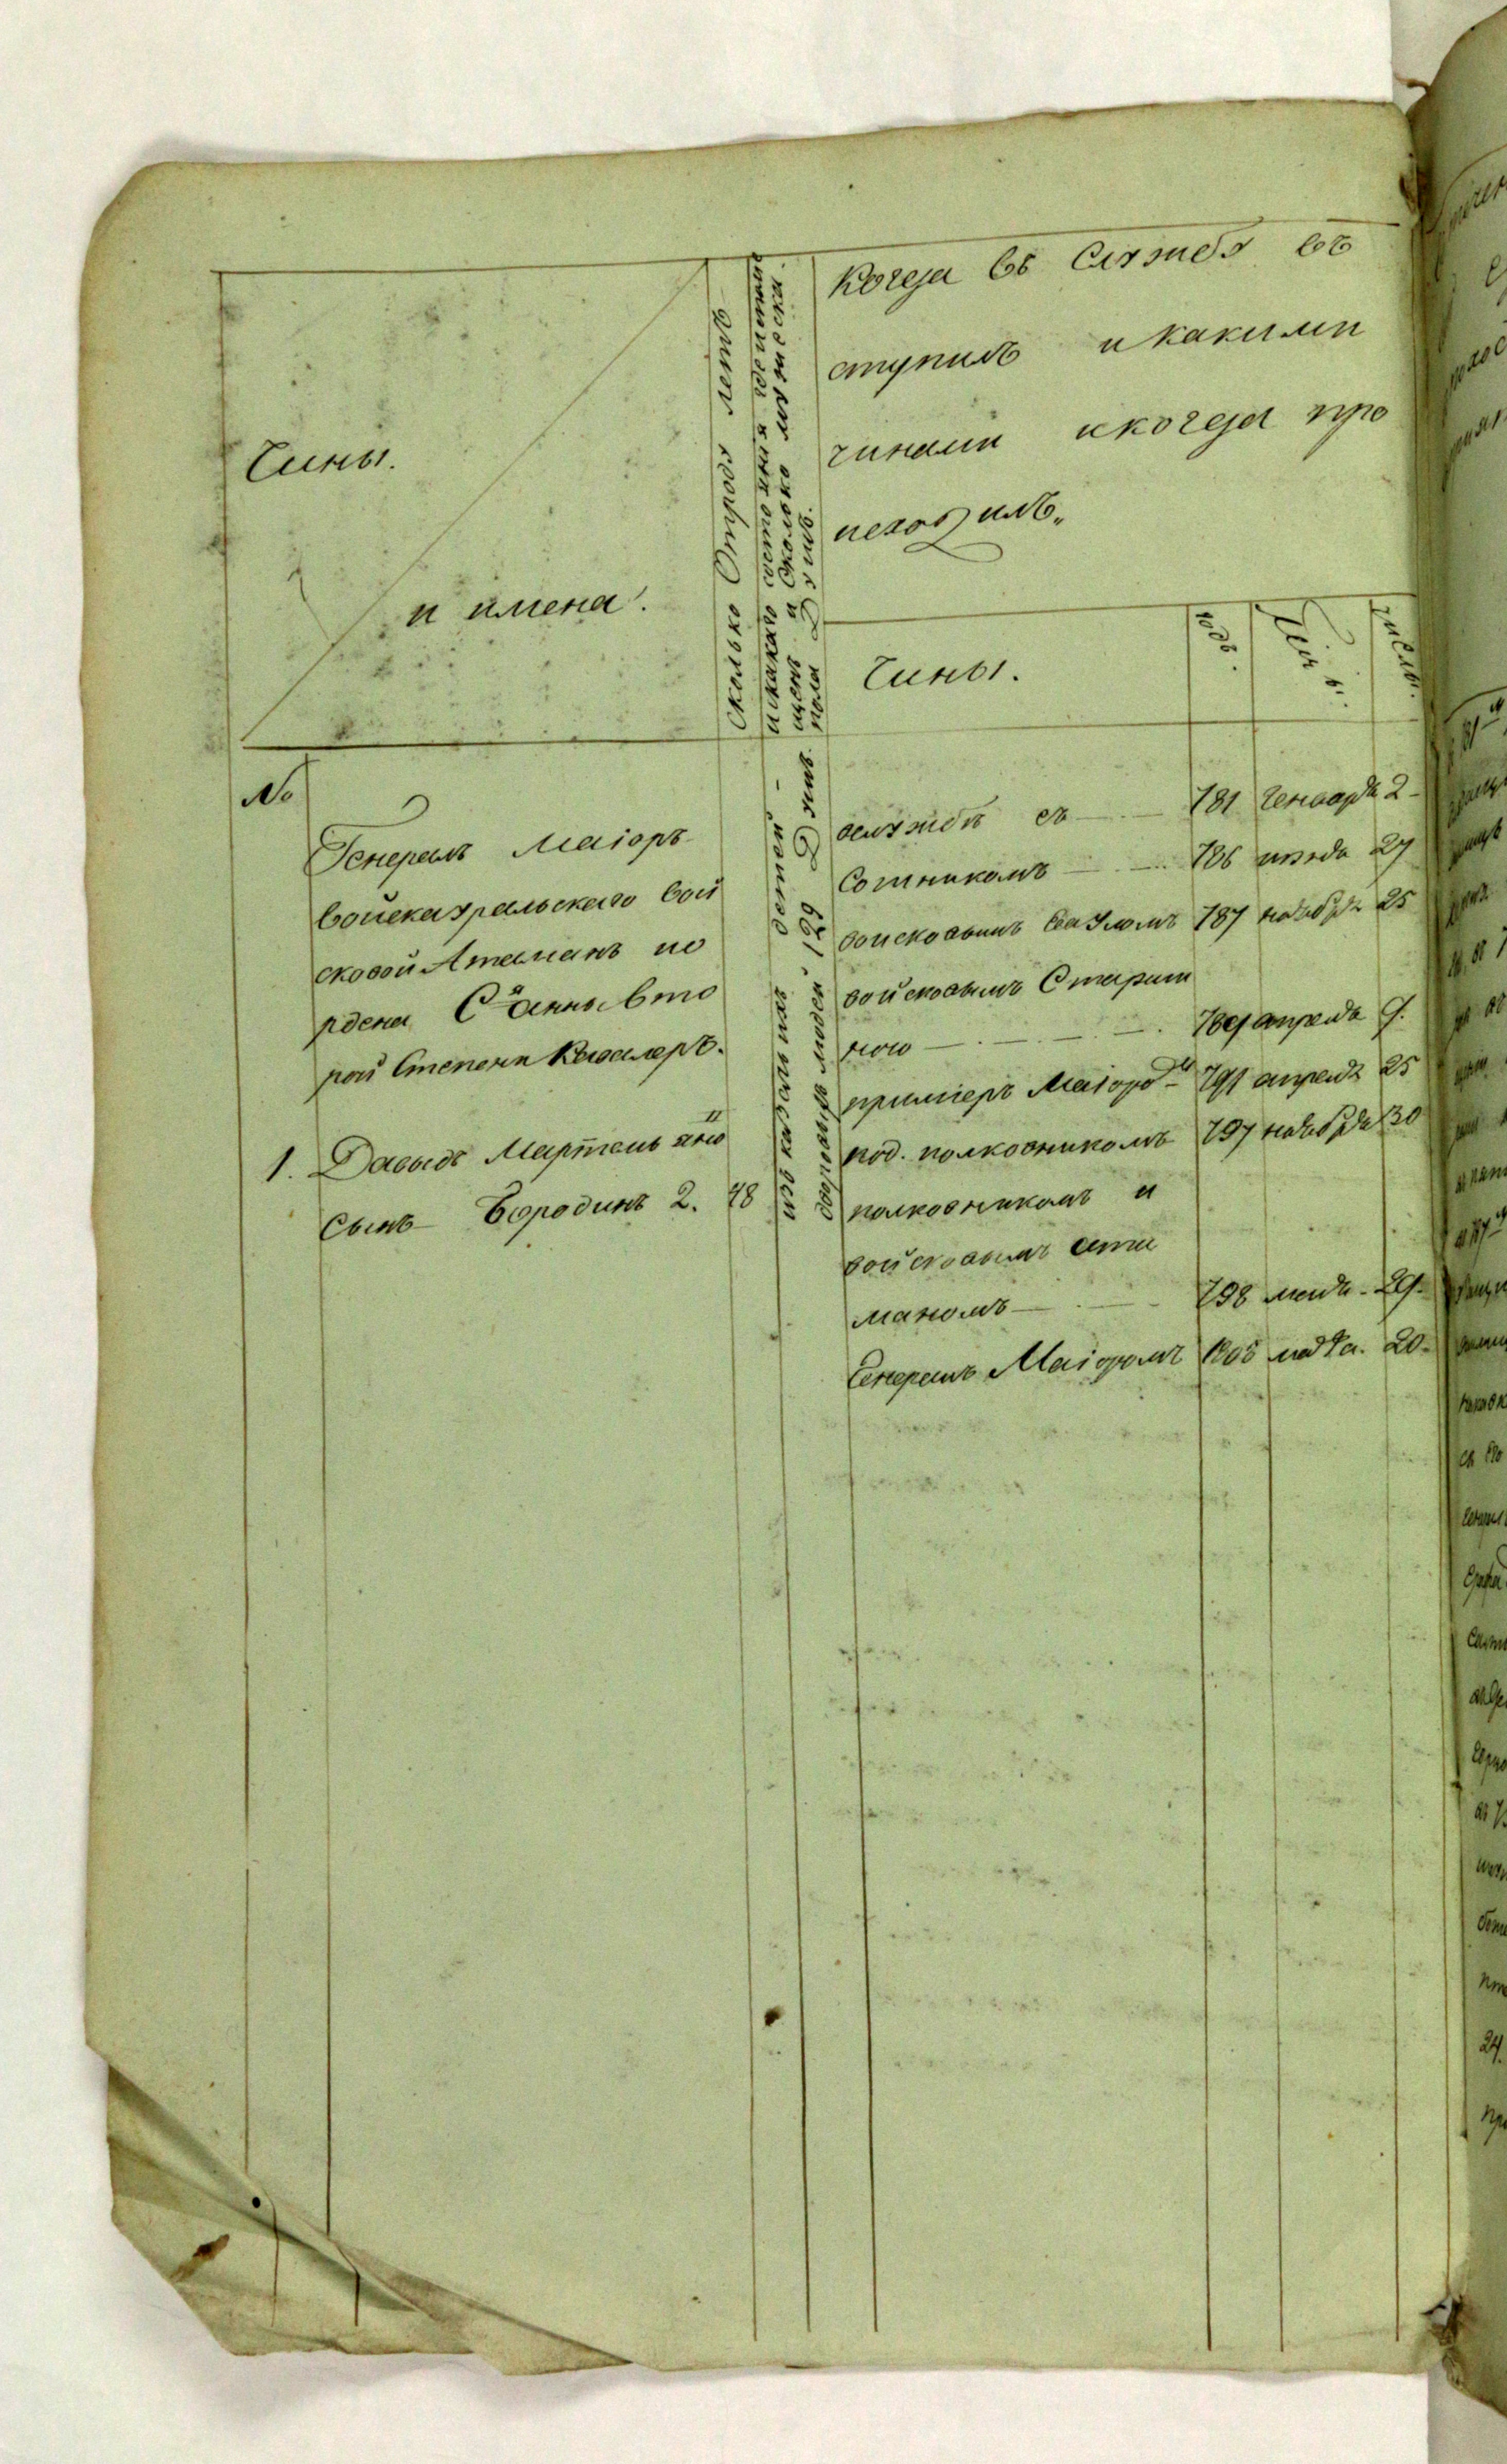 Чины.
и имена.
Сколько Отроду летъ
искакаго состояния
Сколько мужеска
пола Душъ.
Когда въ Службу въ
ступилъ и какими
чинами и когда про
исходилъ.
Чины.
годъ.
числъ.
№
Генералъ Маіоръ
войска уральскаго вой
сковой Атаманъ и о
рдена Сᵗ анны вто
рой Степени Кавалеръ.
1. Давыдъ Мартемьяно
сынъ Бородинъ 2. 48
изъ казачьихъ детей
дворовыхъ людей 129 Душъ.
вслужбѣ съ — 781 генваря 2
Сотникомъ — 786 27
войсковымъ Есауломъ 787 ноября 25
войсковымъ Старши
ною — 789 апреля 9.
примьеръ Маіоромъ 791 апреля 25
под. полковникомъ 797 ноября 30
полковникомъ и
войсковымъ ата
маномъ — 798 маия 29.
Генералъ Маіоромъ 20.